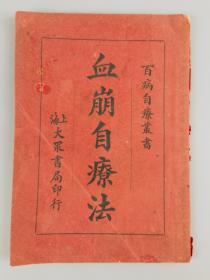 百病自療叢書
血崩自療法
上海大眾書局印行